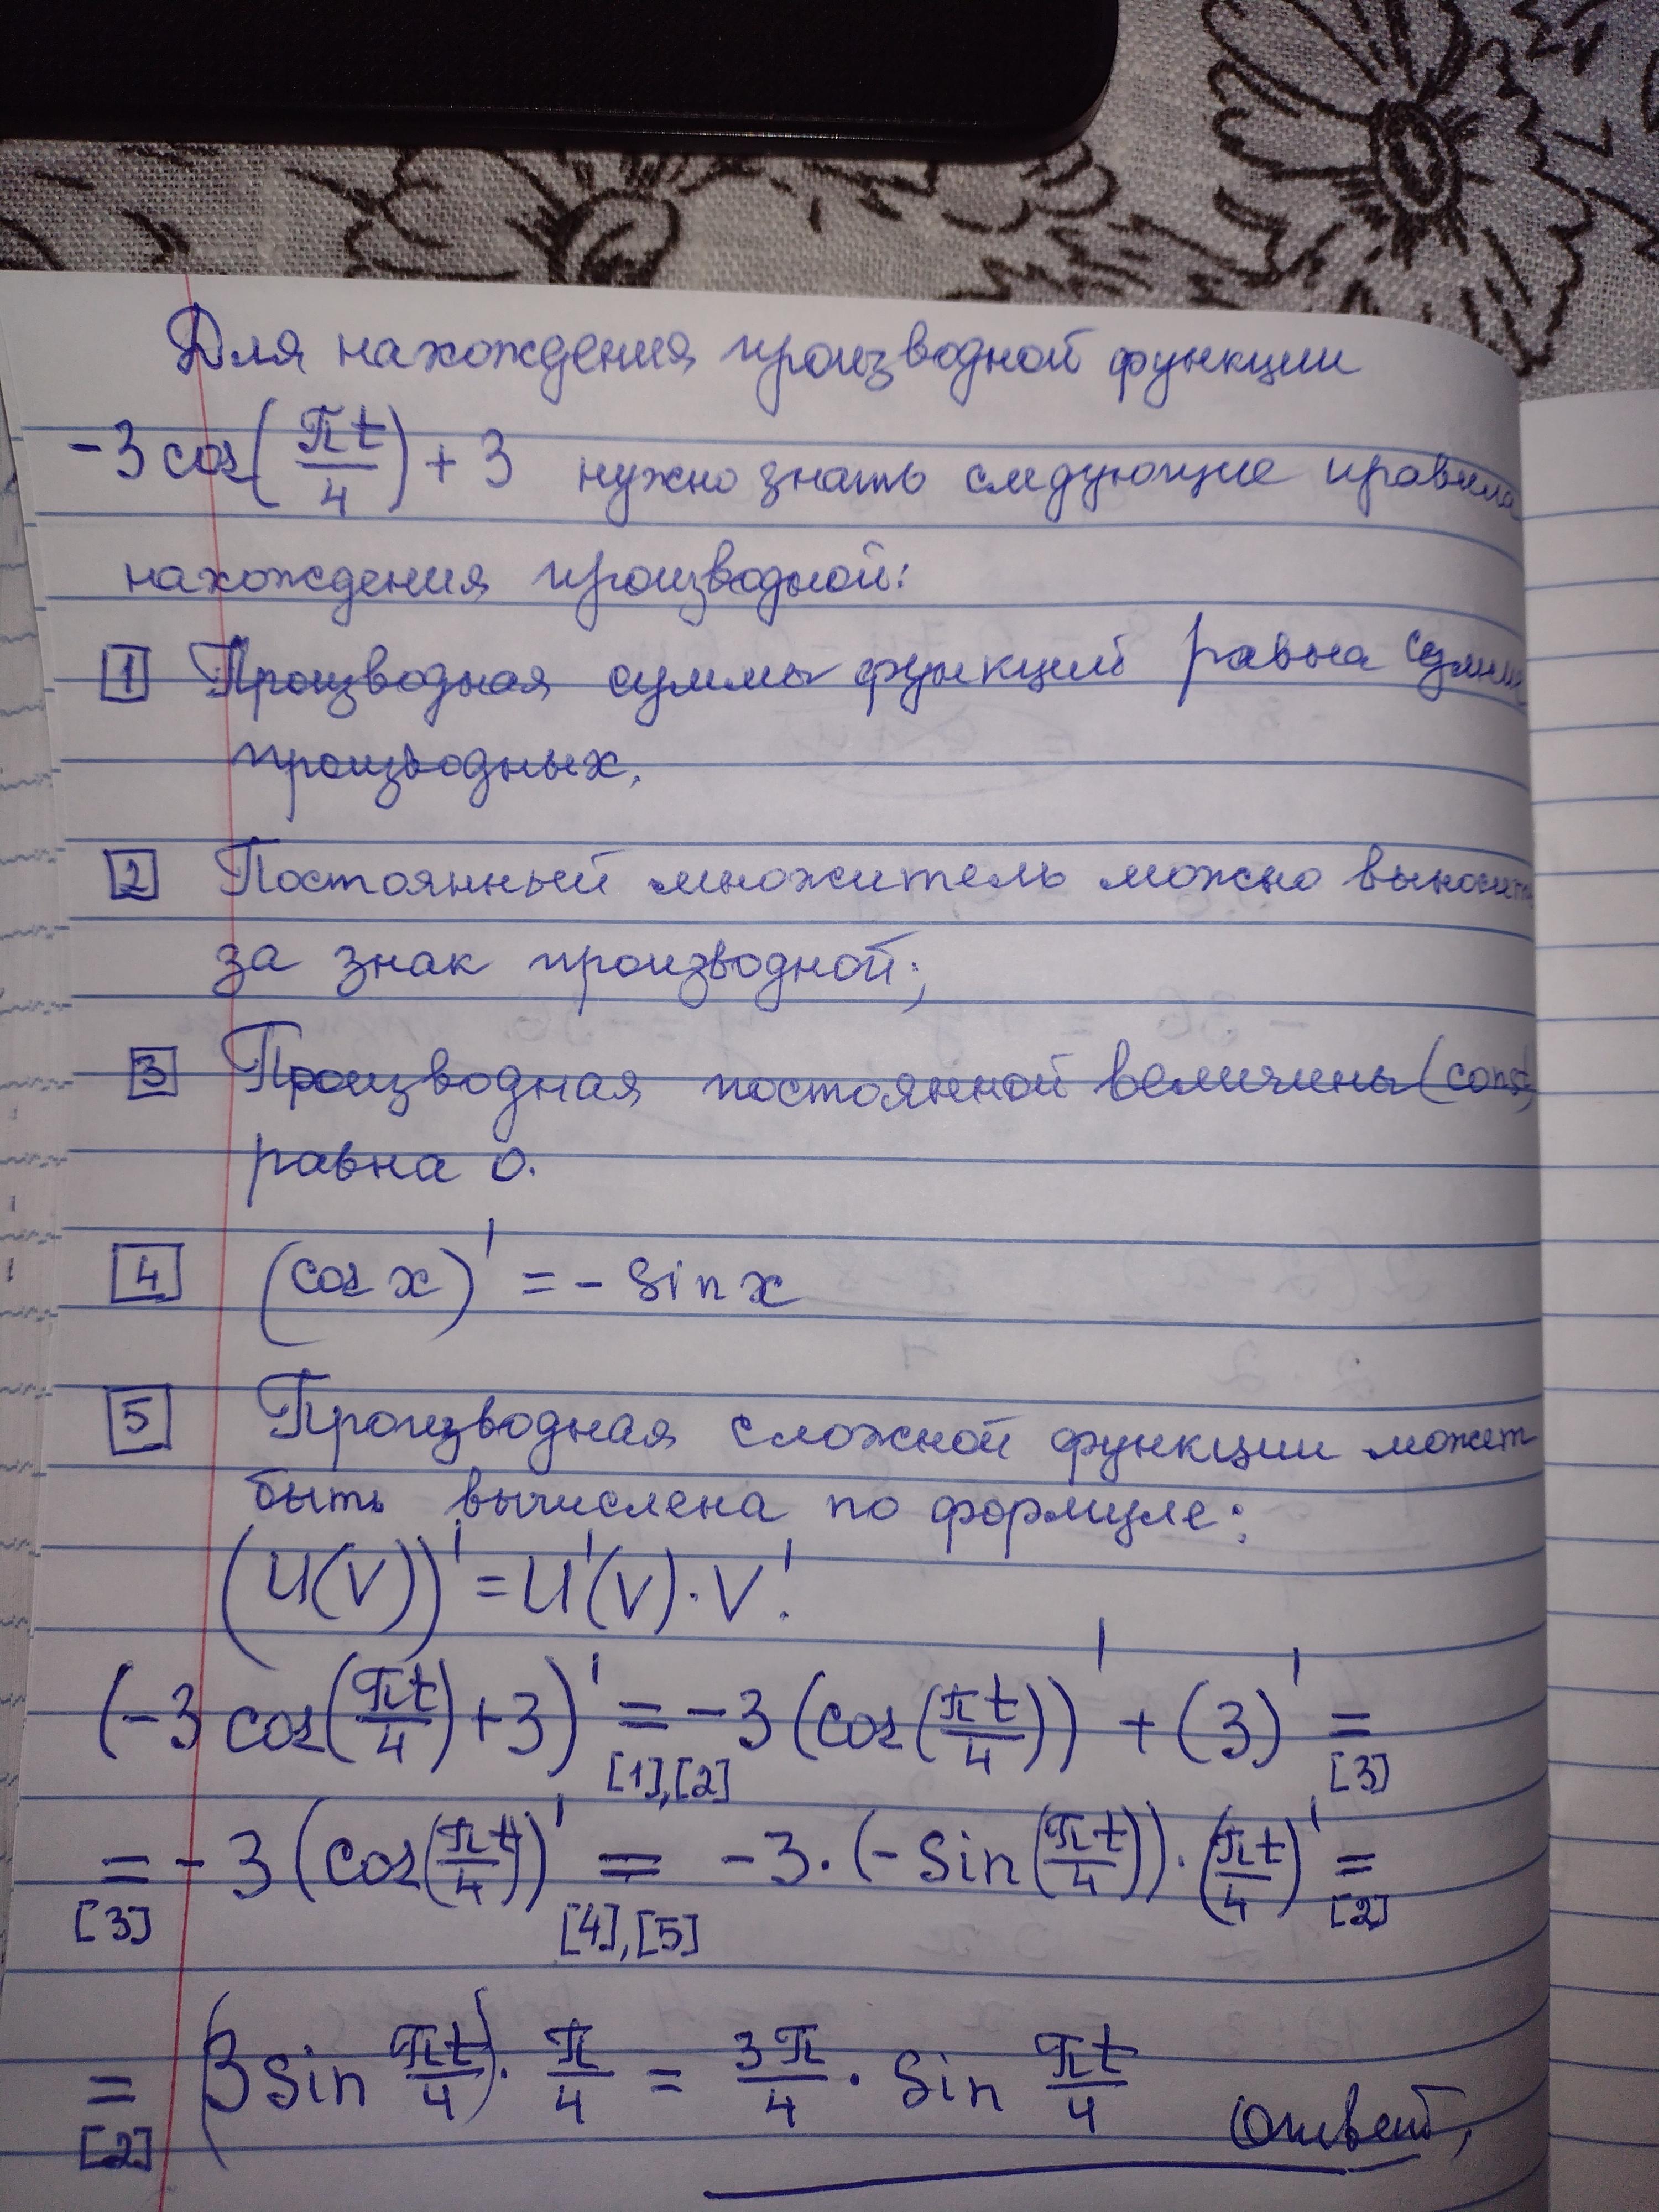 Для нахождения производной функции
-3 cos(πt/4) + 3 нужно знать следующие правила
нахождения производной:
1 Производная суммы функций равна сумме
производных.
2 Постоянный множитель можно выносить
за знак производной;
3 Производная постоянной величины (const)
равна 0.
4 (cos x)' = - sin x
5 Производная сложной функции может
быть вычислена по формуле:
(U(V))' = U'(V) · V'.
(-3 cos(πt/4) + 3)' = [1],[2] -3 (cos(πt/4))' + (3)' = [3]
= [3] -3 (cos(πt/4))' = [4],[5] -3 · (- sin(πt/4)) · (πt/4)' = [2]
= [2] (3 sin πt/4) · π/4 = 3π/4 · sin πt/4 Ответ.